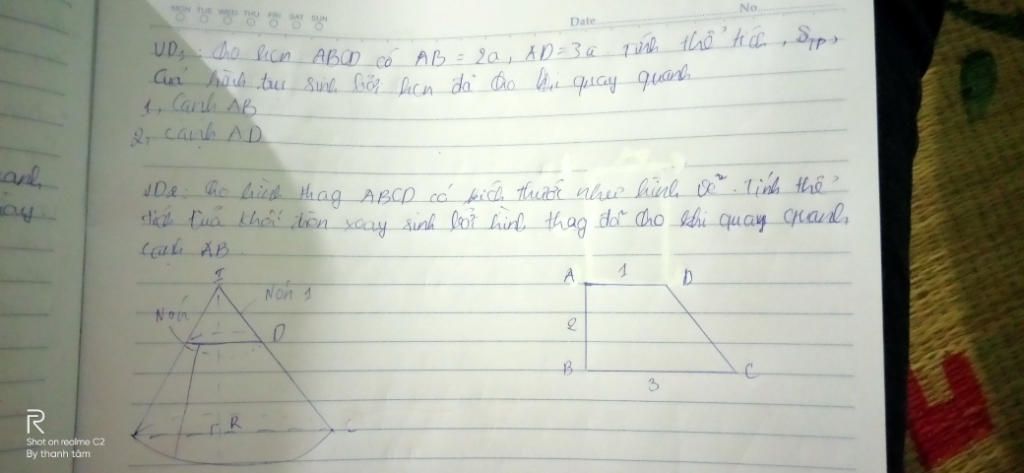 MON TUE WED THU FRI SAT SUN
Date No
VD1: Cho hcn ABCD có AB = 2a, AD = 3a. Tính thể tích, STP,
của hình trụ sinh bởi hcn đã cho khi quay quanh
1, Cạnh AB
2, cạnh AD
VD2: Cho hình thag ABCD có kích thước như hình vẽ. Tính thể
tích của khối tròn xoay sinh bởi hình thag đã cho khi quay quanh
cạnh AB
I
Nón 1
Nón
D
R
C
A 1 D
2
B 3 C
R
Shot on realme C2
By thanh tâm